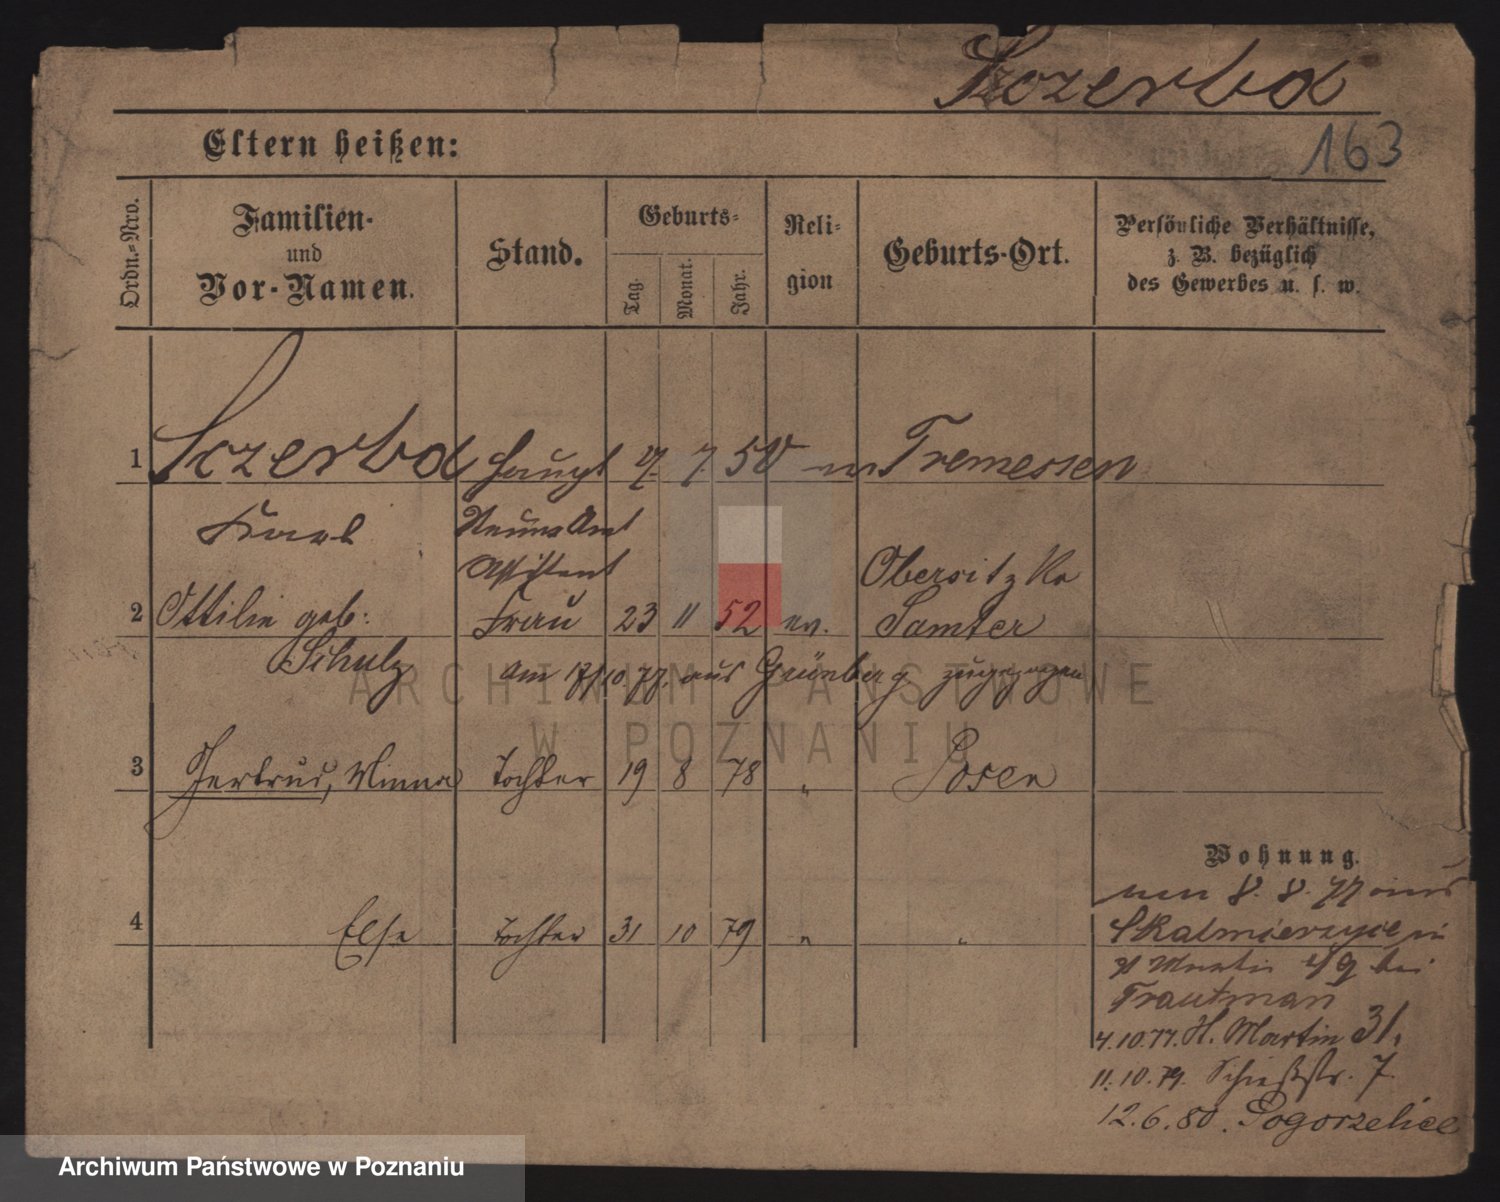 Szczerba
163
Eltern heißen:
Ordn.-Nro.
Familien-
und
Vor-Namen.
Stand.
Geburts-
Tag.
Monat.
Jahr.
Reli-
gion
Geburts-Ort.
Persönliche Verhältnisse,
z. B. bezüglich
des Gewerbes u. s. w.
1 Sczerba Haupt 7. 50 Tremessen
Karl Steuer Amt
Assistent
Obersitzko
2 Ottilie geb: Frau 23 11 52 ev. Samter
Schulz am 17/10 77. aus Grünberg zugezogen
3 Gertrud, Minna Tochter 19 8 78 " Posen
Wohnung.
8. 8. 77 aus
4 Else Tochter 31 10 79 " "
Skalmierzyce in
St Martin bei
Trautman
4.10.77. St. Martin 31.
11.10.79. Schießstr. 7.
12.6.80. Pogorzelice
ARCHIWUM PAŃSTWOWE
W POZNANIU
Archiwum Państwowe w Poznaniu